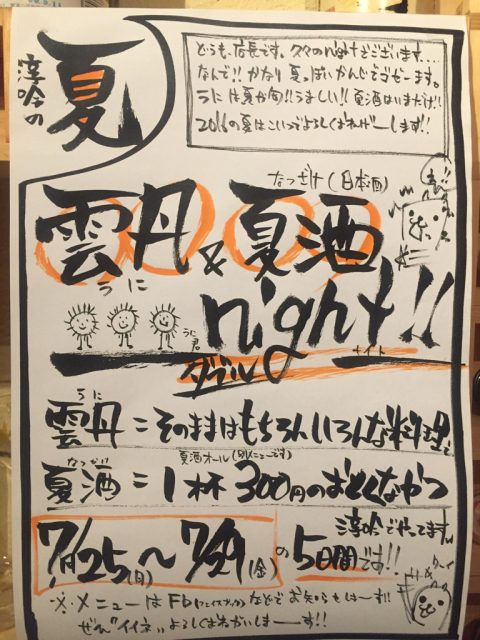 淳吟の
夏
どうも、店長です。久々のnightでございます....
なんで!!かなり夏っぽいかんじでござーます。
うには夏が旬!!うましい!!夏酒はいまだけ!!
2016の夏はこいつでよろしくおねげーします!!
なつざけ(日本酒)
雲丹&夏酒
うに
night!!
うに君
ダブル
ナイト
うに
雲丹=そのままはもちろんいろんな料理で
夏酒オール(別メニューです)
なつざけ
夏酒=1杯300円のおとくなやつ
7/25(月)～7/29(金)の5日間です!!
淳吟でやってます。
※メニューはFB(フェイスブック)などでお知らせしまーす!!
ぜんぶ"イイネ"よろしくおねがいしまーす!!